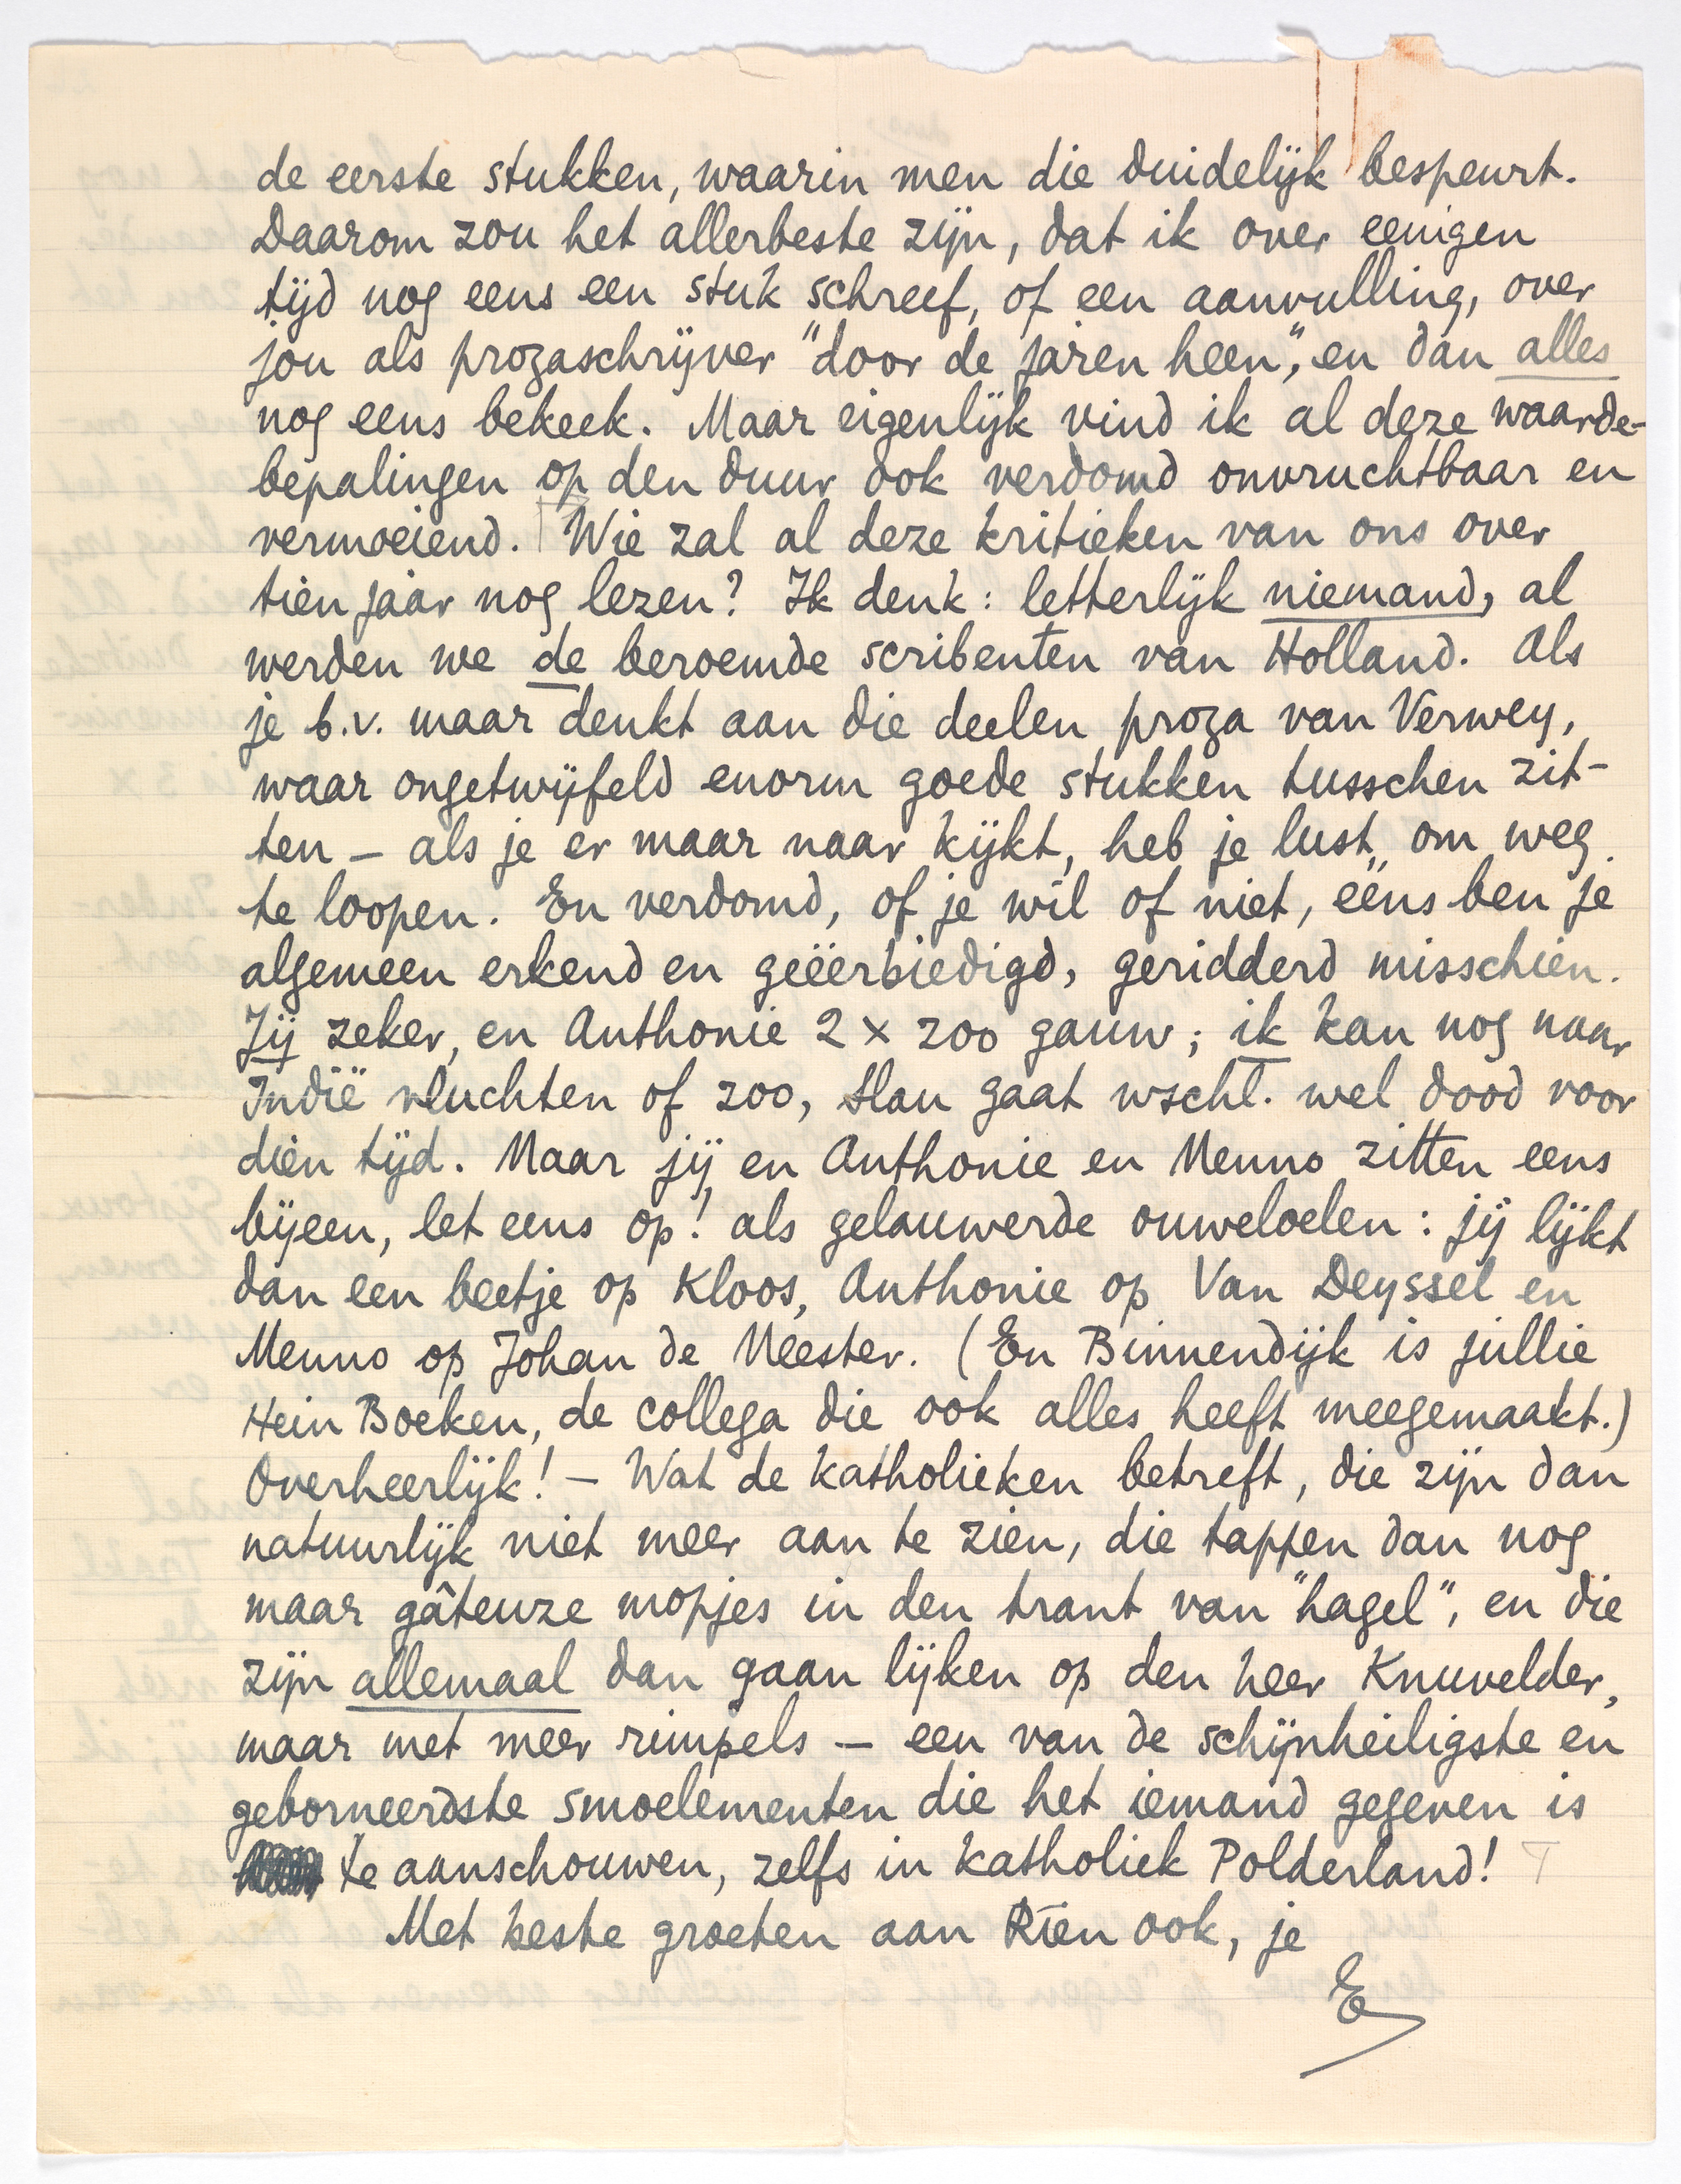 de eerste stukken, waarin men die duidelijk bespeurt.
Daarom zou het allerbeste zijn, dat ik over eenigen
tijd nog eens een stuk schreef, of een aanvulling, over
jou als prozaschrijver "door de jaren heen", en dan alles
nog eens bekeek. Maar eigenlijk vind ik al deze waarde-
bepalingen op den duur ook verdomd onvruchtbaar en
vermoeiend. Wie zal al deze kritieken van ons over
tien jaar nog lezen? Ik denk: letterlijk niemand, al
werden we de beroemde scribenten van Holland. Als
je b.v. maar denkt aan die deelen proza van Verwey,
waar ongetwijfeld enorm goede stukken tusschen zit-
ten – als je er maar naar kijkt, heb je lust om weg
te loopen. En verdomd, of je wil of niet, ééns ben je
algemeen erkend en geëerbiedigd, geridderd misschien.
Jij zeker, en Anthonie 2 x zoo gauw; ik kan nog naar
Indië vluchten of zoo, Slau gaat wschl. wel dood voor
dien tijd. Maar jij en Anthonie en Menno zitten eens
bijeen, let eens op! als gelauwerde ouweloelen: jij lijkt
dan een beetje op Kloos, Anthonie op Van Deyssel en
Menno op Johan de Meester. (En Binnendijk is jullie
Hein Boeken, de collega die ook alles heeft meegemaakt.)
Overheerlijk! – Wat de katholieken betreft, die zijn dan
natuurlijk niet meer aan te zien, die tappen dan nog
maar gâteuze mopjes in den trant van "hagel", en die
zijn allemaal dan gaan lijken op den heer Knuvelder,
maar met meer rimpels – een van de schijnheiligste en
geborneerdste smoelementen die het iemand gegeven is
te aanschouwen, zelfs in katholiek Polderland!
Met beste groeten aan Rien ook, je
E